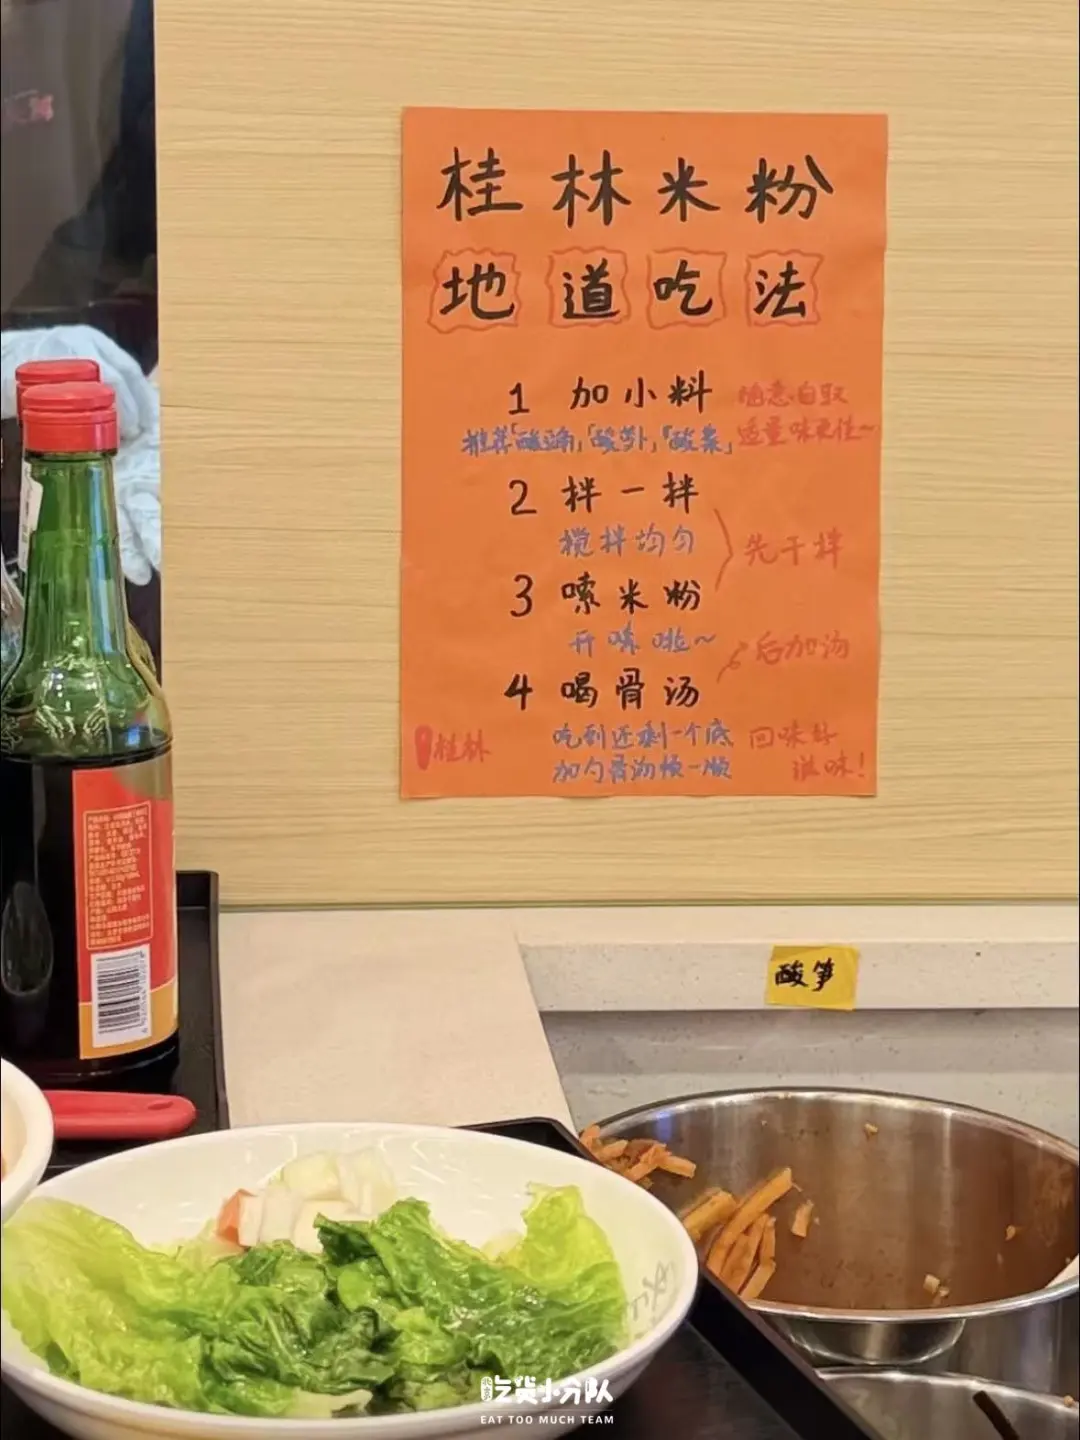 桂林米粉
地道吃法
1 加小料
随意自取
适量味更佳~
推荐「酸豆角」「酸萝卜」「酸菜」
2 拌一拌
搅拌均匀
先干拌
3 嗦米粉
开嗦啦~
后加汤
4 喝骨汤
吃到还剩一个底
加勺骨汤顺一顺
回味好
滋味!
桂林
酸笋
北京吃货小分队
EAT TOO MUCH TEAM